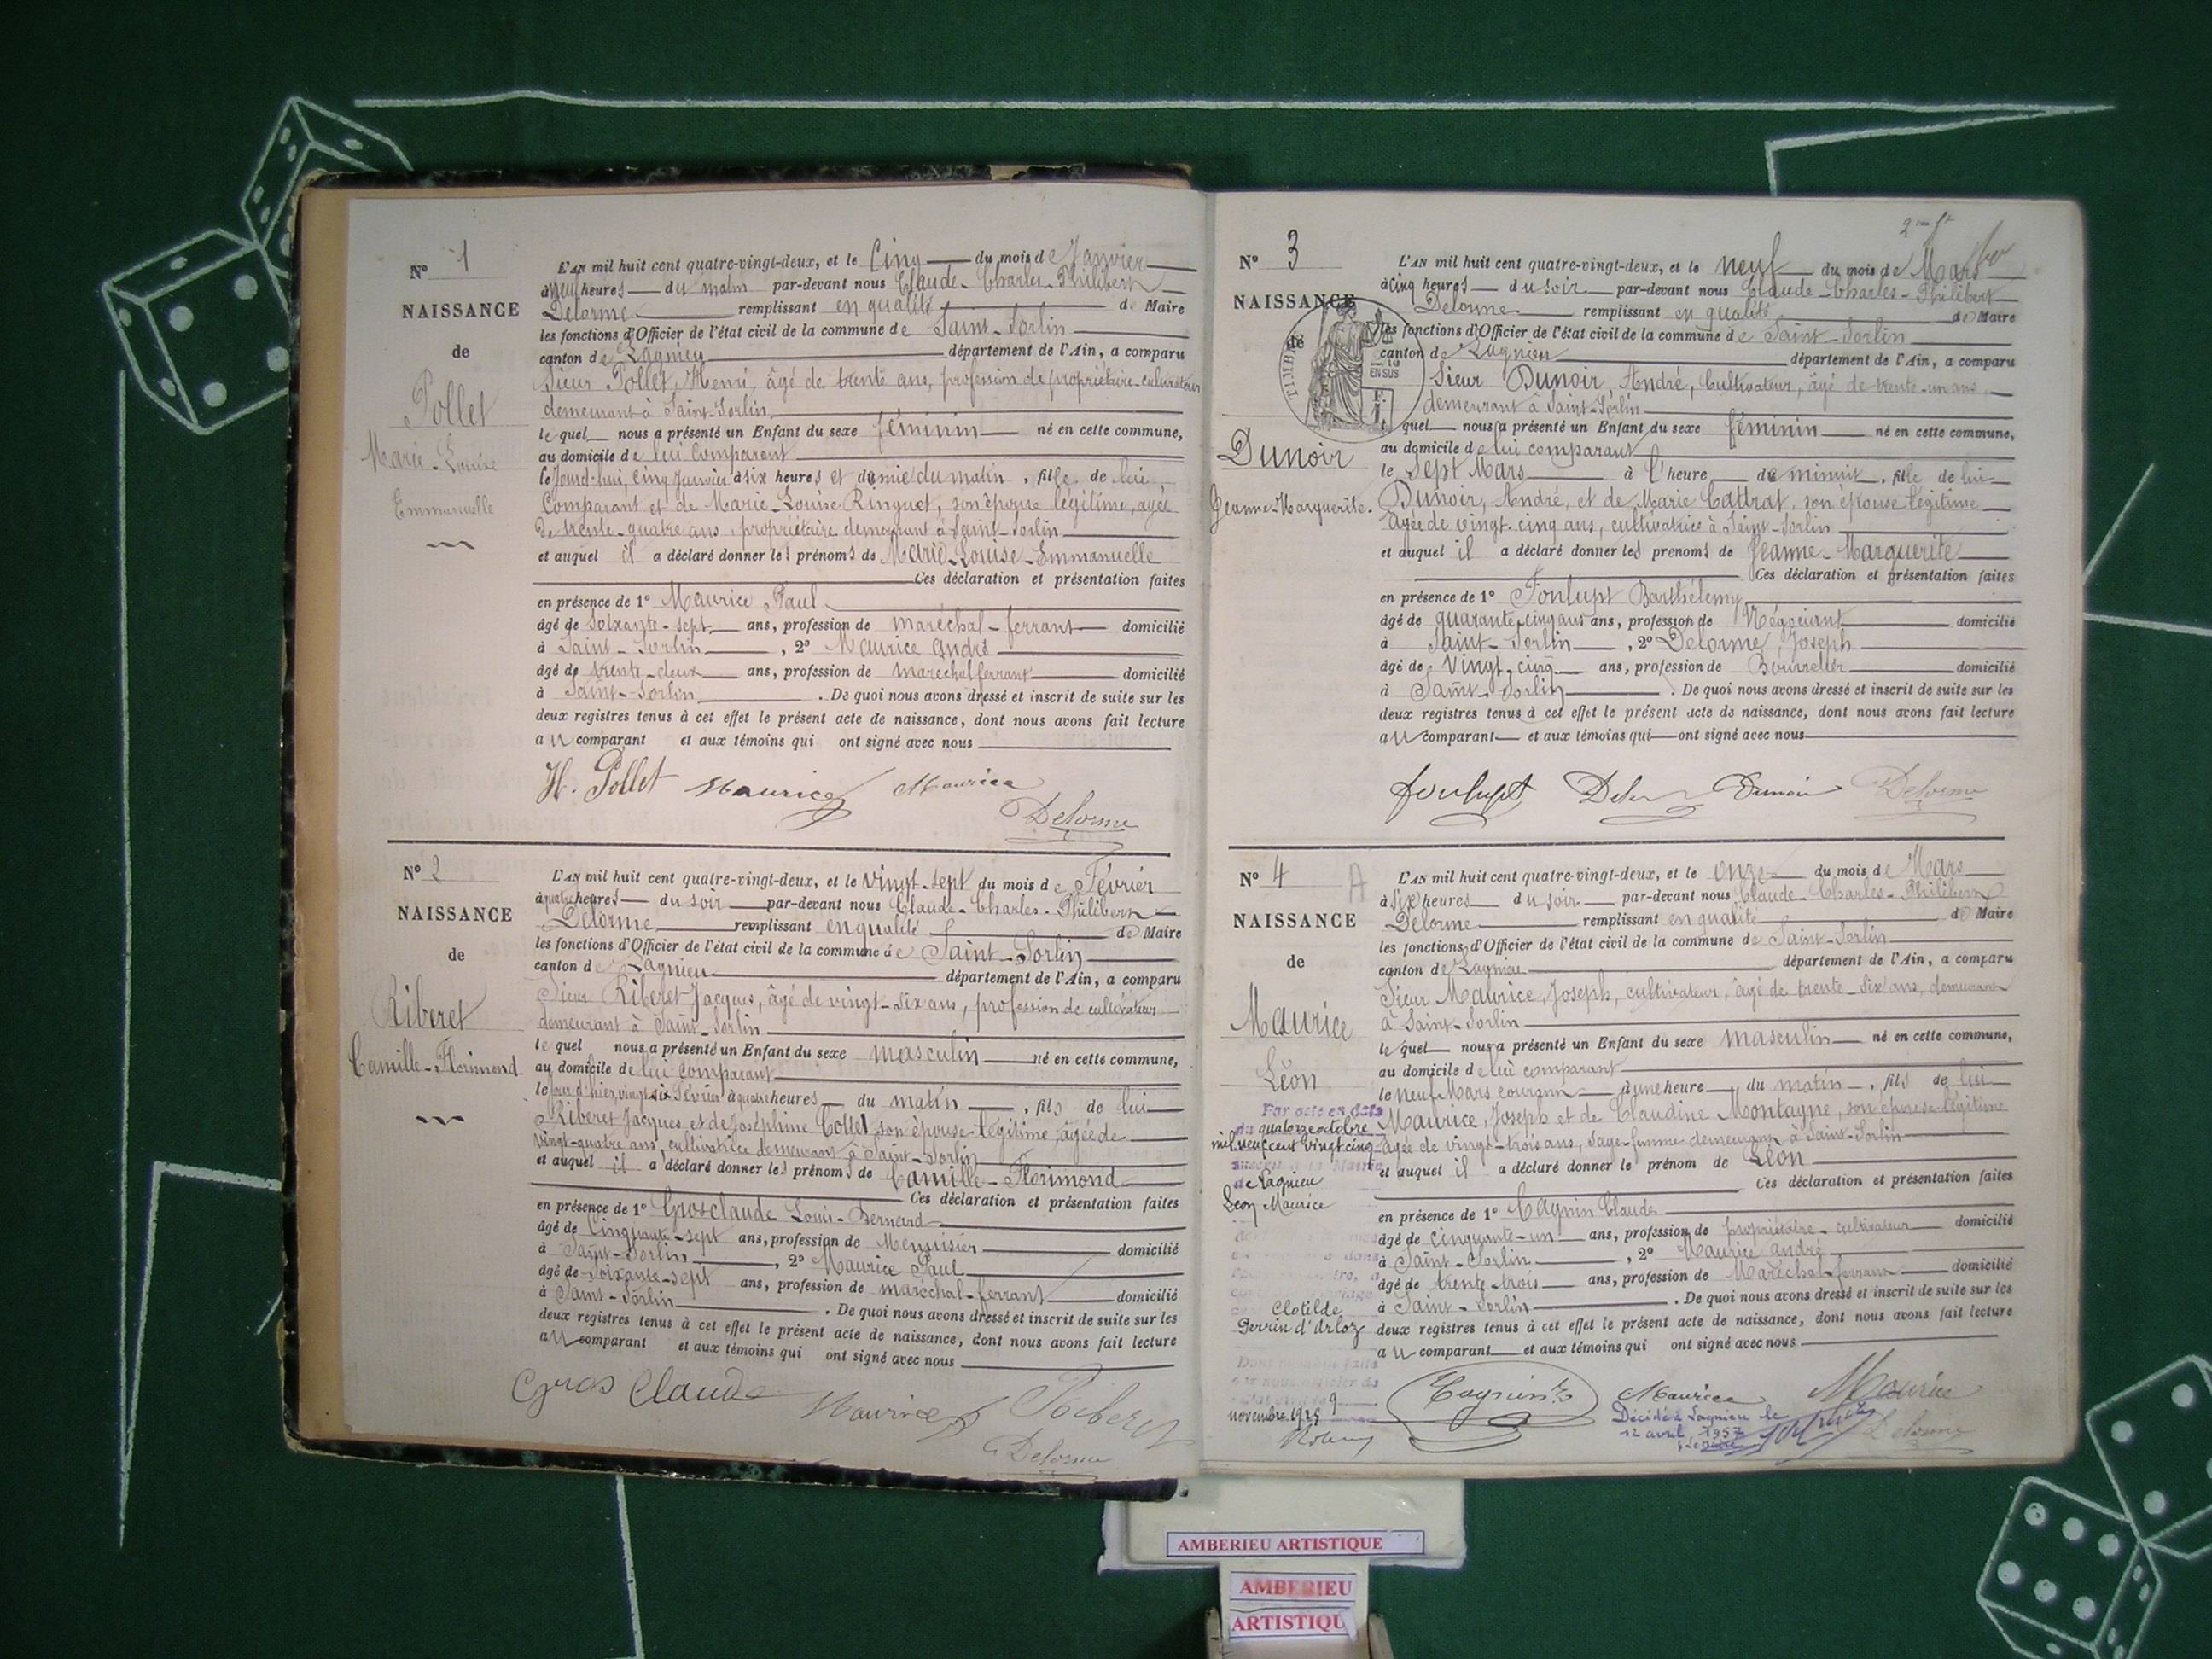 N° 1
NAISSANCE
de
Pollet
Marie-Louise
Emmanuelle
L'AN mil huit cent quatre-vingt-deux, et le Cinq du mois de Janvier
à neuf heures du matin par-devant nous Claude-Charles-Philibert
Delorme remplissant en qualité de Maire
les fonctions d'Officier de l'état civil de la commune de Saint-Sorlin
canton de Lagnieu département de l'Ain, a comparu
Sieur Pollet, Henri, âgé de trente ans, profession de propriétaire-cultivateur
demeurant à Saint-Sorlin
lequel nous a présenté un Enfant du sexe féminin né en cette commune,
au domicile de lui comparant
le Jourd-hui, cinq Janvier à six heures et demie du matin, fille de lui,
Comparant et de Marie-Louise Ringuet, son épouse légitime, agée
de trente-quatre ans, propriétaire demeurant à Saint-Sorlin
et auquel il a déclaré donner les prénoms de Marie-Louise-Emmanuelle
Ces déclaration et présentation faites
en présence de 1° Maurice Paul
âgé de Soixante-sept ans, profession de maréchal-ferrant domicilié
à Saint-Sorlin, 2° Maurice André
âgé de trente-deux ans, profession de maréchal ferrant domicilié
à Saint-Sorlin. De quoi nous avons dressé et inscrit de suite sur les
deux registres tenus à cet effet le présent acte de naissance, dont nous avons fait lecture
au comparant et aux témoins qui ont signé avec nous
H. Pollet Maurice Maurice
Delorme
N° 2
NAISSANCE
de
Riberet
Camille-Florimond
L'AN mil huit cent quatre-vingt-deux, et le vingt-sept du mois de Février
à quatre heures du soir par-devant nous Claude-Charles-Philibert
Delorme remplissant en qualité de Maire
les fonctions d'Officier de l'état civil de la commune de Saint-Sorlin
canton de Lagnieu département de l'Ain, a comparu
Sieur Riberet Jacques, âgé de vingt-six ans, profession de cultivateur
demeurant à Saint-Sorlin
lequel nous a présenté un Enfant du sexe masculin né en cette commune,
au domicile de lui comparant
le jour d'hier, vingt six Février à quatre heures du matin, fils de lui
Riberet Jacques, et de Joséphine Collet son épouse légitime âgée de
vingt-quatre ans, cultivatrice demeurant à Saint-Sorlin
et auquel il a déclaré donner les prénoms de Camille-Florimond
Ces déclaration et présentation faites
en présence de 1° Grosclaude Louis-Bernard
âgé de Cinquante-sept ans, profession de Menuisier domicilié
à Saint-Sorlin, 2° Maurice Paul
âgé de Soixante-sept ans, profession de maréchal-ferrant domicilié
à Saint-Sorlin. De quoi nous avons dressé et inscrit de suite sur les
deux registres tenus à cet effet le présent acte de naissance, dont nous avons fait lecture
au comparant et aux témoins qui ont signé avec nous
Gros Claude Maurice Riberet
Delorme
N° 3
NAISSANCE
de
Dunoir
Jeanne-Marguerite.
L'AN mil huit cent quatre-vingt-deux, et le neuf du mois de Mars
à Cinq heures du soir par-devant nous Claude-Charles-Philibert
Delorme remplissant en qualité de Maire
les fonctions d'Officier de l'état civil de la commune de Saint-Sorlin
canton de Lagnieu département de l'Ain, a comparu
Sieur Dunoir, André, Cultivateur, âgé de trente-un ans
demeurant à Saint-Sorlin
quel nous a présenté un Enfant du sexe féminin né en cette commune,
au domicile de lui comparant
le Sept Mars à l'heure de minuit, fille de lui
Dunoir, André, et de Marie Cattrat, son épouse légitime
agée de vingt-cinq ans, cultivatrice à Saint-Sorlin
et auquel il a déclaré donner les prénoms de Jeanne-Marguerite
Ces déclaration et présentation faites
en présence de 1° Fonlupt Barthélemy
âgé de quarante cinq ans ans, profession de Négociant domicilié
à Saint-Sorlin, 2° Delorme, Joseph
âgé de Vingt-cinq ans, profession de Bourrelier domicilié
à Saint-Sorlin. De quoi nous avons dressé et inscrit de suite sur les
deux registres tenus à cet effet le présent acte de naissance, dont nous avons fait lecture
au comparant et aux témoins qui ont signé avec nous
fonlupt Dunoir Delorme
N° 4
A
NAISSANCE
de
Maurice
Léon
Par acte en date
du quatorze octobre
mil neuf cent vingt cinq
de Lagnieu
Léon Maurice
Clotilde
Perrin d'Arloz
novembre 1925
L'AN mil huit cent quatre-vingt-deux, et le onze du mois de Mars
à six heures du soir par-devant nous Claude-Charles-Philibert
Delorme remplissant en qualité de Maire
les fonctions d'Officier de l'état civil de la commune de Saint-Sorlin
canton de Lagnieu département de l'Ain, a comparu
Sieur Maurice, Joseph, cultivateur, âgé de trente-six ans, demeurant
à Saint-Sorlin
lequel nous a présenté un Enfant du sexe masculin né en cette commune,
au domicile de lui comparant
le neuf Mars courant à une heure du matin, fils de lui
Maurice, Joseph et de Claudine Montagne, son épouse légitime
âgée de vingt-trois ans, Sage-femme demeurant à Saint-Sorlin
et auquel il a déclaré donner le prénom de Léon
Ces déclaration et présentation faites
en présence de 1° Cagnin Claude
âgé de cinquante-un ans, profession de propriétaire-cultivateur domicilié
à Saint-Sorlin, 2° Maurice andré
âgé de trente-trois ans, profession de Maréchal-ferrant domicilié
à Saint-Sorlin. De quoi nous avons dressé et inscrit de suite sur les
deux registres tenus à cet effet le présent acte de naissance, dont nous avons fait lecture
au comparant et aux témoins qui ont signé avec nous
Cagnin Maurice Maurice
Décédé à Lagnieu le
12 avril 1957
Delorme
AMBERIEU ARTISTIQUE
AMBERIEU
ARTISTIQU